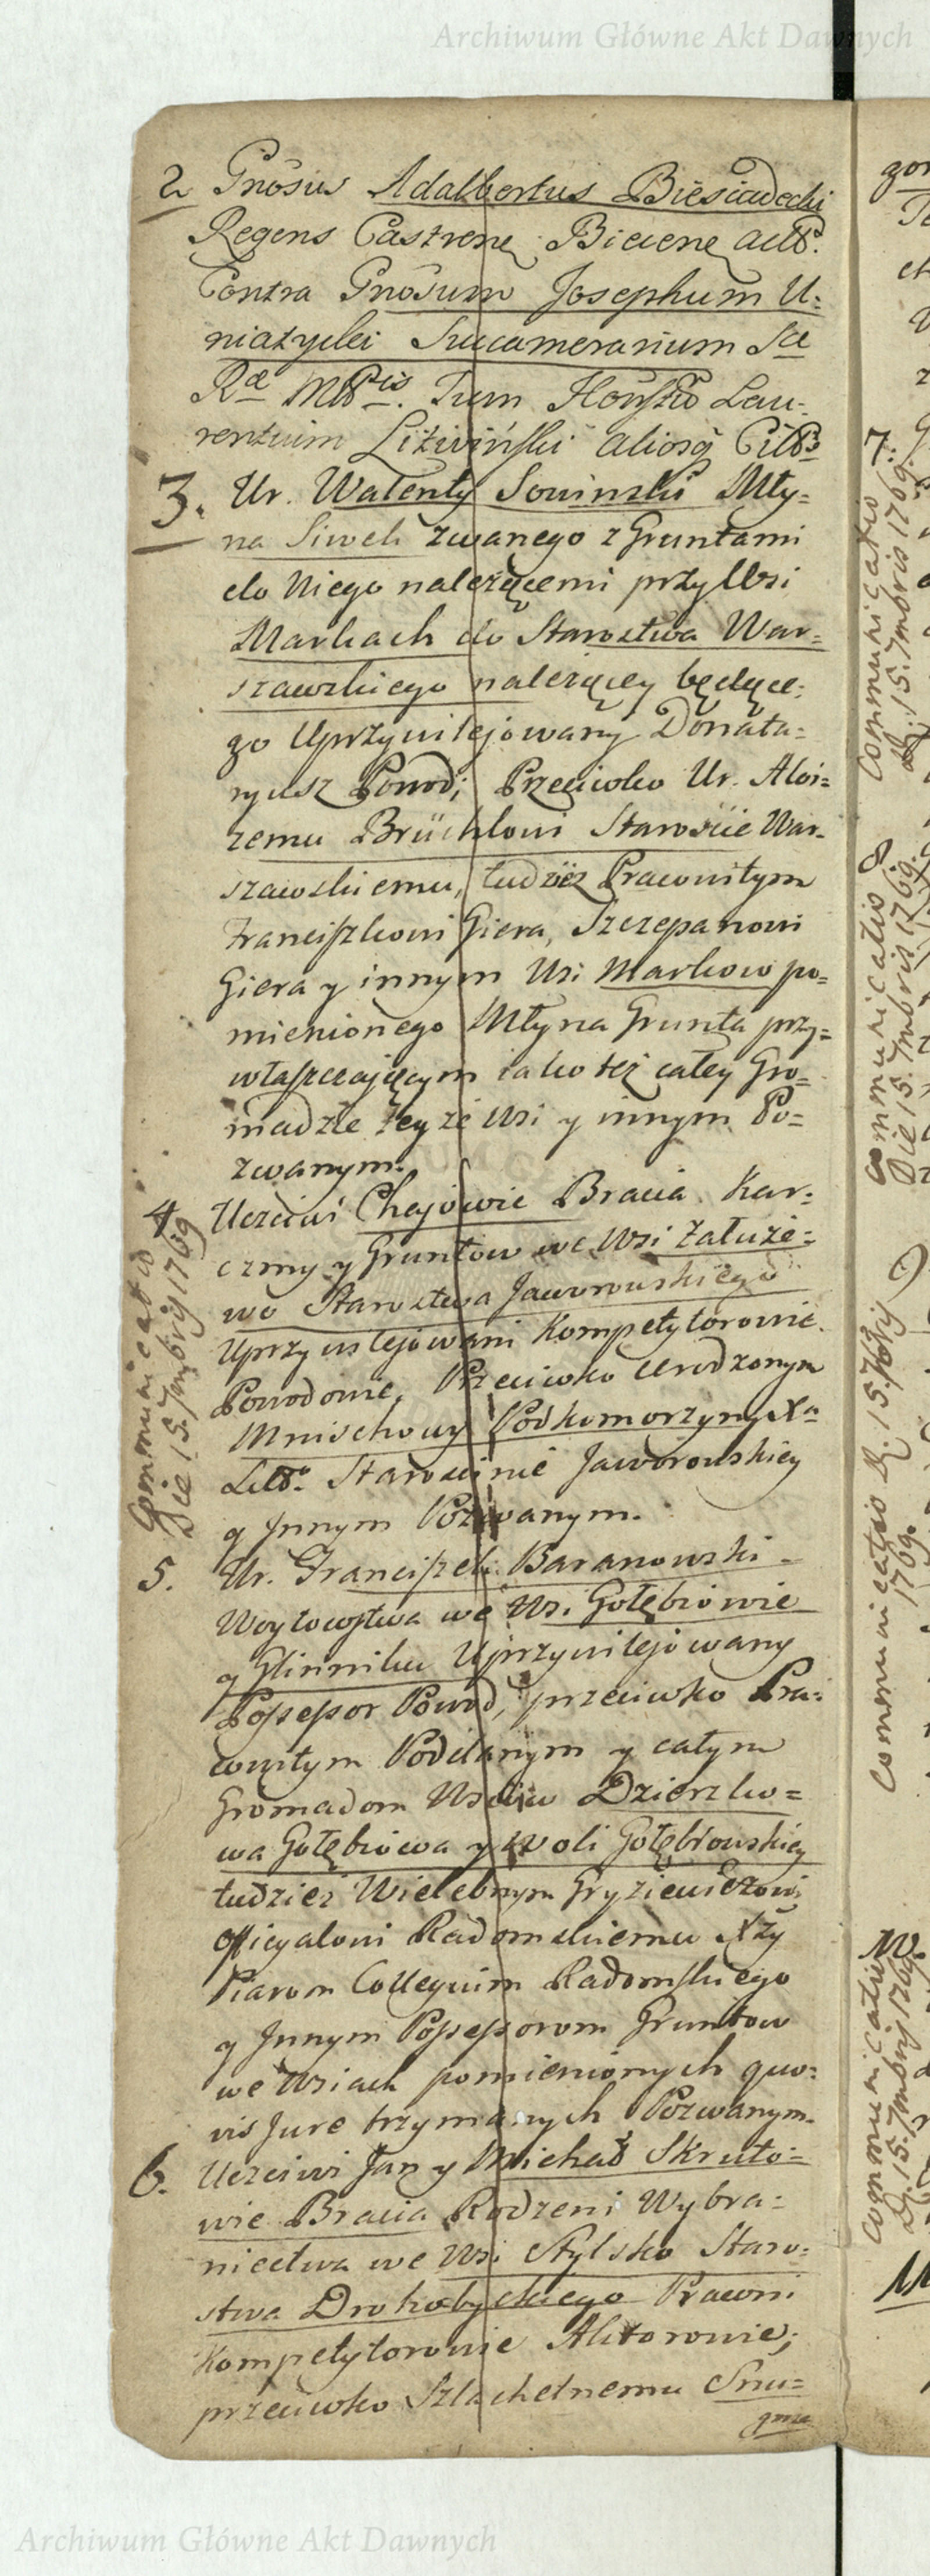 Archiwum Główne Akt Dawnych
2 Gnosus Adalbertus Biesiadecki
Regens Castrenę Biecenę
Contra Gnosum Josephum U-
niatycki Succamerarium Sæ
Ræ Mttis. Tum Lau-
rentium Litwiński aliosq
3. Ur. Walenty Sowinski Mły-
na Siwek zwanego z Gruntami
do Niego należącemi przy Wsi
Markach do Starostwa War-
szawskiego należącey będące-
go Uprzywilejowany Donata-
ryusz Powod; Przeciwko Ur. Aloi-
zemu Brüchlowi Staroście War-
szawskiemu, tudzież Prawnitym
Franciszkowi Giera, Szczepanowi
Giera y innym Wsi Markow po-
mienionego Młyna Grunta przy-
właszczaiącym iako też całey Gro-
madzie teyże Wsi y innym Po-
zwanym.
4 Uczciwi Chajowie Bracia Kar-
czmy y Gruntow we Wsi Załuże-
wo Starostwa Jaworowskiego
Uprzywilejowani Kompetytorowie
Powodowie, Przeciwko Urodzonym
Mnischowy Podkomorzyny Xa
Litto. Starościnie Jaworowskiey
y Jnnym Pozwanym.
Communicatio
Die 15. 7mbrij 1769
5. Ur. Franciszek Baranowski -
Woytowstwa we Wsi Gołębiowie
y Glinniku Uprzywilejowany
Possessor Powod, przeciwko Pra-
cowitym Poddanym y całym
Gromadom Wsiow Dzierzko-
wa Gołębiowa y Woli Gołębiowskiey
tudzież Wielebnym Gryziewiczowi
Officyalowi Radomskiemu Xży
Piarom Collegium Radomskiego
y Jnnym Possessorom Gruntow
we Wsiach pomienionych quo-
vis Jure trzymanych Pozwanym.
6. Uczciwi Jan y Michał Skruto-
wie Bracia Rodzeni Wybra-
niectwa we Wsi Stylsko Staro-
stwa Drohobyckiego Prawni
Kompetytorowie Aktorowie;
przeciwko Szlachetnemu
7. Communicatio
D. 15. 7mbris 1769.
8 Communicatio
Die 15. 7mbris 1769.
9 Communicatio D. 15. 7bris
1769.
10. Communicatio
D. 15. 7mbrij 1769.
Archiwum Główne Akt Dawnych